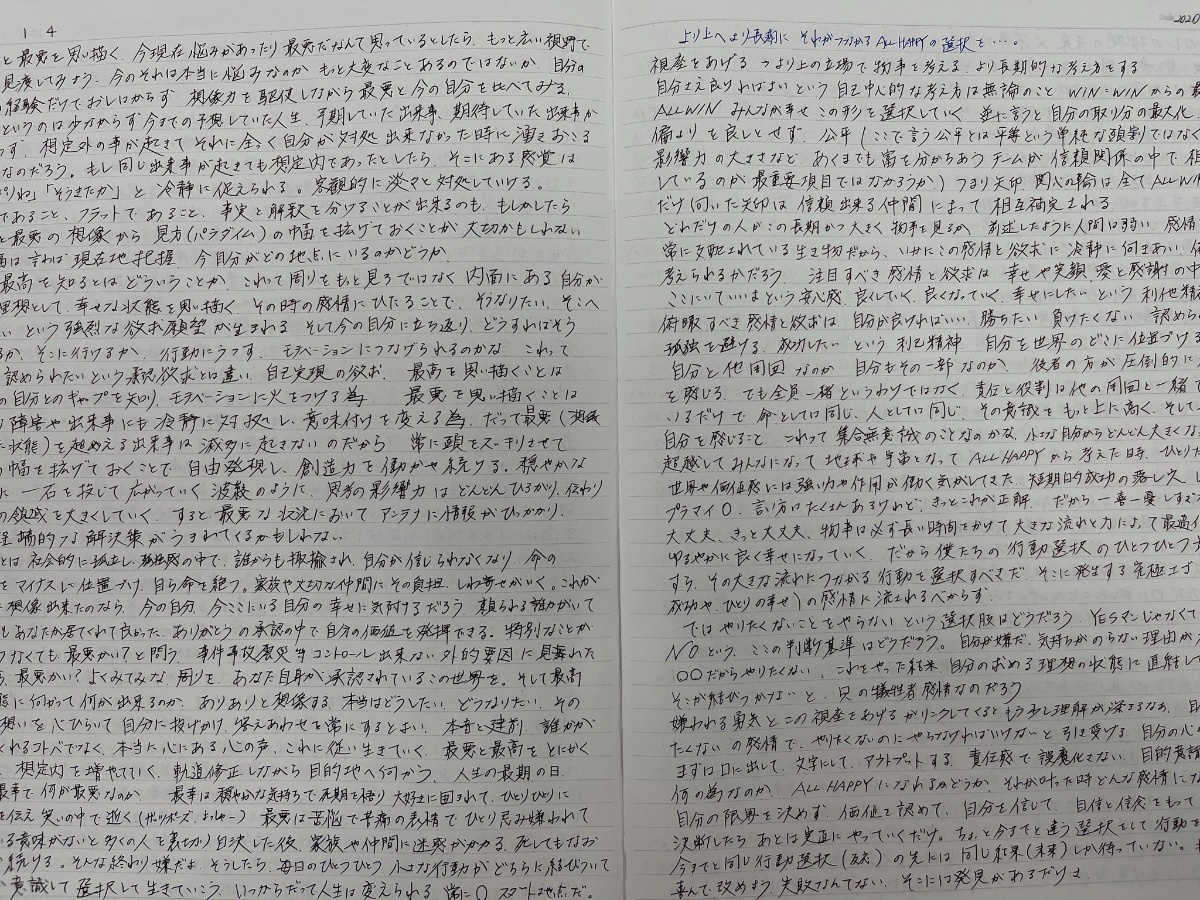 14
と最悪を思い描く、今現在悩みがあったり最悪だなんて思っているとしたら、もっと広い視野で
見渡してみよう、今のそれは本当に悩みなのか もっと大変なことあるのではないか、自分の
経験だけでおしはからず 想像力を駆使しながら最悪と今の自分を比べてみる、
というのは少なからず今までの予想していた人生、予期していた出来事、期待していた出来事か
らず、想定外の事が起きて それに全く自分が対処出来なかった時に湧きおこる
なのだろう。もし同じ出来事が起きても想定内であったとしたら、そこにある感覚は
「そうきたか」と冷静に促えられる。客観的に淡々と対処していける。
であること、フラットであること、事実と解釈を分けることが出来るのも、もしかしたら
と最悪の想像から 見方(パラダイム)の幅を拡げておくことが大切かもしれない
は言わば現在地把握 今自分がどの地点にいるのかどうか、
最高を知るとはどういうことか、これって周りをもっと見ろではなく内面にある自分が
理想として、幸せな状態を思い描く、その時の感情にひたることで、そうなりたい、そこへ
い という強烈な欲求願望が生まれる そして今の自分に立ち返り、どうすればそう
るか、そこに行けるか、行動にうつす、モチベーションにつなげられるのかな これって
認められたいという承認欲求とは違い、自己実現の欲求、 最高を思い描くことは
の自分とのギャップを知り、モチベーションに火をつける為、 最悪を思い描くことは
障害や出来事にも冷静に対処し、意味付けを変える為、だって最悪(
状態)を超める出来事は滅多に起きないのだから 常に頭をスッキリさせて
の幅を拡げておくことで 自由発想し、創造力を働かせ続ける。穏やかな
に一石を投じて広がっていく波紋のように、思考の影響力はどんどんひろがり、伝わり
の領域を大きくしていく、すると最悪な状況においてアンテナに情報がひっかかり、
な解決策がうまれてくるかもしれない
とは社会的に孤立し、孤独感の中で、誰からも揶揄され、自分が信じられなくなり、命の
をマイナスに位置づけ、自ら命を絶つ。家族や大切な仲間にその負担、しわ寄せがいく。これが
想像出来たのなら、今の自分、今ここにいる自分の幸せに気付けるだろう、頼られる誰かがいて
もあなたが居てくれて良かった、ありがとうの承認の中で自分の価値を発揮できる。特別なことが
なくても、最悪かい?と問う、事件事故震災等コントロール出来ない外的要因に見舞れた
最悪かい?よくみてみな、周りを、あなた自身が承認されているこの世界を。そして最高
態に向かって何が出来るのか、ありありと想像する、本当はどうしたい、どうなりたい、その
想いを心ひらいて自分に投げかけ、答えあわせを常にするとよい、本音と建前、誰かが
くれるコトバでなく、本当に心にある心の声、これに従い生きていく、最悪と最高をとにかく
、想定内を増やしていく、軌道修正しながら目的地へ向かう、人生の最期の日、
最幸で、何が最悪なのか、 最幸は穏やかな気持ちで死期を悟り 大好きに囲まれて、ひとりひとりに
を伝え 笑いの中で逝く 最悪は苦悩で苦痛の表情で ひとり忌み嫌われて
る意味がないと多くの人を裏切り自決した後、家族や仲間に迷惑がかかる、死してもなお
続ける。そんな終わり嫌だよ、そうしたら、毎日のひとつひとつ小さな行動がどちらに結びついて
意識して選択して生きていこう、いつからだって人生は変えられる 常に0 スタート地点だ。
2020
より上へより長期に それがつながるALL HAPPYの選択を…。
視座をあげる つまり上の立場で物事を考える、より長期的な考え方をする
自分さえ良ければよいという自己中心的な考え方は無論のこと WIN=WINからの最
ALL WIN みんなが幸せ この形を選択していく 並に言うと自分の取り分の最大化
偏よりを良しとせず、公平(ここで言う公平とは平等という単純な頭割ではなく
影響力の大きさなど、あくまでも富を分かちあうチームが信頼関係の中で相
しているのが最重要項目ではなかろうか) つまり矢印、関心の輪は全てALL WIN
だけ向いた矢印は信頼出来る仲間によって相互補完される
どれだけの人がこの長期かつ大きく物事を見るか、前述したように人間は弱い、感情
常に支配されている生き物だから、いかにこの感情と欲求に冷静に向きあい、
考えられるかだろう、 注目すべき感情と欲求は 幸せや笑顔、愛と感謝の中
ここにいていいよという安心感、良くしていく、良くなっていく、幸せにしたいという利他精神
俯瞰すべき感情と欲求は 自分が良ければいい、勝ちたい 負けたくない 認めら
孤独を避ける、成功したいという利己精神 自分を世界のどこに位置づける
自分と他周囲なのか 自分もその一部なのか、 後者の方が圧倒的に
を感じる、でも全員一緒というわけではなく、責任と役割は他の周囲と一緒で
いるだけで 命としては同じ、人としては同じ、その意識をもっと上に高く、そして
自分を感じること これって集合無意識のことなのかな、小さな自分からどんどん大きくな
超越してみんなになって 地球や宇宙となって ALL HAPPYから考えた時、ひとりた
世界や価値感には強い力や作用が働く気がしてきた、短期的成功の落し穴、
プラマイ0、言い方はたくさんあるけれど、きっとこれが正解、だから一喜一憂しすぎ
大丈夫、きっと大丈夫、物事は必ず長い時間をかけて大きな流れと力によって最高
ゆるやかに良く幸せになっていく、だから僕たちの行動選択のひとつひとつ
すら、その大きな流れにつながる行動を選択すべきだ、そこに発生する究極エゴ
成功や、ひとりの幸せ)の感情に流されるべからず、
ではやりたくないことをやらないという選択肢はどうだろう、YESマンじゃなくて
NOという、ここの判断基準はどうだろう。自分が嫌だ、気持ちがのらない理由が
〇〇だからやりたくない、これをやった結末、自分のおめる理想の状態に直結して
そこが結びつかないと、只の犠牲者感情なのだろう
嫌われる勇気とこの視座をあげるがリンクしてくるともう少し理解が深まるなぁ、
たくないの感情で、やりたくないのにやらなければいけないと引き受ける、自分の心の
まずは口に出して、文字にして、アウトプットする、責任感で誤魔化さない、目的意識
何の為なのか、ALL HAPPYになれるかどうか、それが叶った時どんな感情にな
自分の限界を決めず、価値を認めて、自分を信じて、自信と信念をもって
決断したらあとは実直にやっていくだけ。ちょっと今までと違う選択をして行動を
今までと同じ行動選択の先には同じ結果(未来)しか待っていない。
喜んで改めよう、失敗なんてない、そこには発見があるだけさ